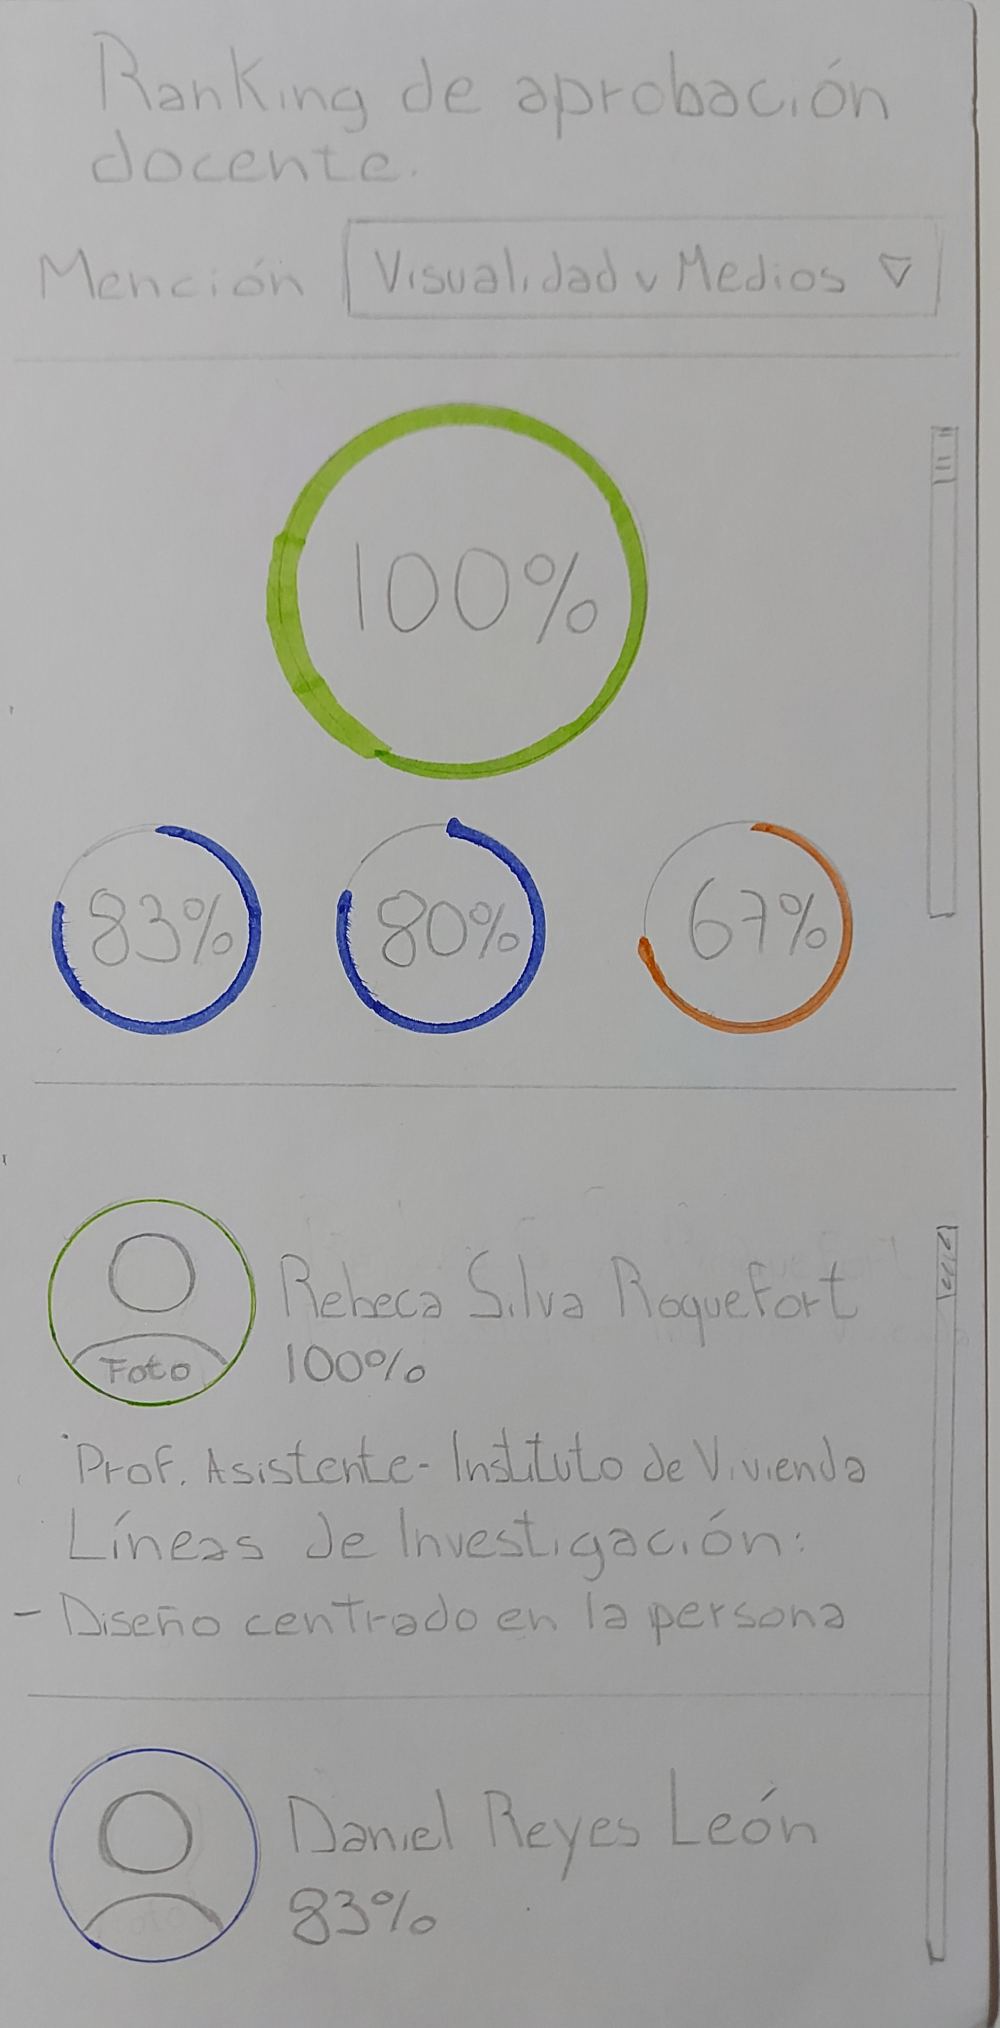 Ranking de aprobación
docente.
Mención Visualidad y Medios
100%
83% 80% 67%
Rebeca Silva Roquefort
100%
Foto
Prof. Asistente - Instituto de Vivienda
Líneas de Investigación:
- Diseño centrado en la persona
Daniel Reyes León
83%